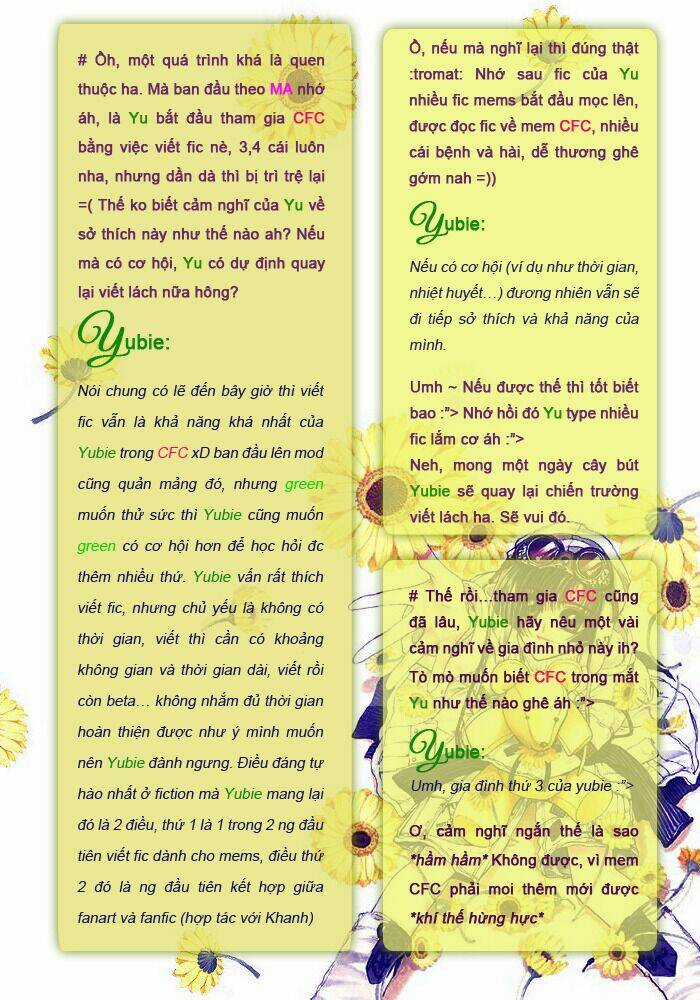 # Ồh, một quá trình khá là quen
thuộc ha. Mà ban đầu theo MA nhớ
áh, là Yu bắt đầu tham gia CFC
bằng việc viết fic nè, 3,4 cái luôn
nha, nhưng dần dà thì bị trì trệ lại
=( Thế ko biết cảm nghĩ của Yu về
sở thích này như thế nào ah? Nếu
mà có cơ hội, Yu có dự định quay
lại viết lách nữa hông?
Yubie:
Nói chung có lẽ đến bây giờ thì viết
fic vẫn là khả năng khá nhất của
Yubie trong CFC xD ban đầu lên mod
cũng quản mảng đó, nhưng green
muốn thử sức thì Yubie cũng muốn
green có cơ hội hơn để học hỏi đc
thêm nhiều thứ. Yubie vẫn rất thích
viết fic, nhưng chủ yếu là không có
thời gian, viết thì cần có khoảng
không gian và thời gian dài, viết rồi
còn beta… không nhắm đủ thời gian
hoàn thiện được như ý mình muốn
nên Yubie đành ngưng. Điều đáng tự
hào nhất ở fiction mà Yubie mang lại
đó là 2 điều, thứ 1 là 1 trong 2 ng đầu
tiên viết fic dành cho mems, điều thứ
2 đó là ng đầu tiên kết hợp giữa
fanart và fanfic (hợp tác với Khanh)
Ồ, nếu mà nghĩ lại thì đúng thật
:tromat: Nhớ sau fic của Yu
nhiều fic mems bắt đầu mọc lên,
được đọc fic về mem CFC, nhiều
cái bệnh và hài, dễ thương ghê
gớm nah =))
Yubie:
Nếu có cơ hội (ví dụ như thời gian,
nhiệt huyết…) đương nhiên vẫn sẽ
đi tiếp sở thích và khả năng của
mình.
Umh ~ Nếu được thế thì tốt biết
bao :”> Nhớ hồi đó Yu type nhiều
fic lắm cơ áh :”>
Neh, mong một ngày cây bút
Yubie sẽ quay lại chiến trường
viết lách ha. Sẽ vui đó.
# Thế rồi…tham gia CFC cũng
đã lâu, Yubie hãy nêu một vài
cảm nghĩ về gia đình nhỏ này ih?
Tò mò muốn biết CFC trong mắt
Yu như thế nào ghê áh :”>
Yubie:
Umh, gia đình thứ 3 của yubie :”>
Ơ, cảm nghĩ ngắn thế là sao
*hầm hầm* Không được, vì mem
CFC phải moi thêm mới được
*khí thế hừng hực*